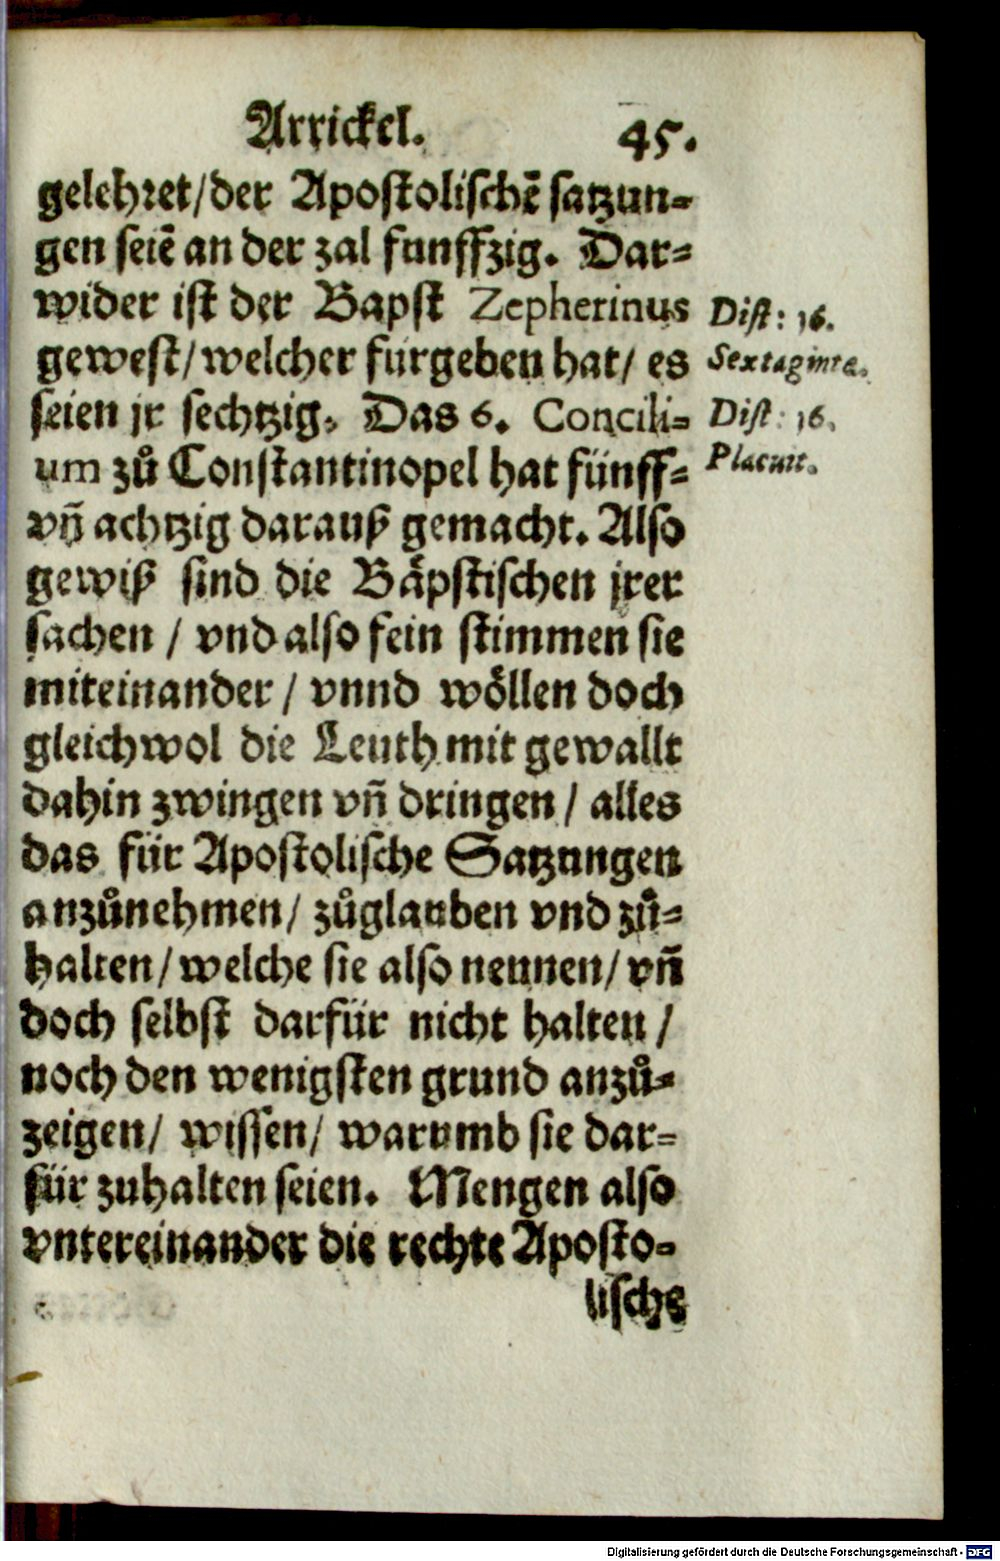 Artickel. 45.
gelehret/der Apostolischẽ satzun-
gen seiẽ an der zal funffzig. Dar-
wider ist der Bapst Zepherinus
gewest/welcher furgeben hat/ es
seien jr sechtzig. Das 6. Concili-
um zů Constantinopel hat fünff-
vñ achtzig darauß gemacht. Also
gewiß sind die Bäpstischen jrer
sachen / vnd also fein stimmen sie
miteinander / vnnd wöllen doch
gleichwol die Leuth mit gewallt
dahin zwingen vñ dringen / alles
das für Apostolische Satzungen
anzůnehmen/ zůglauben vnd zů-
halten/welche sie also nennen/vñ
doch selbst darfür nicht halten /
noch den wenigsten grund anzů-
zeigen/ wissen/ warumb sie dar-
für zuhalten seien. Mengen also
vntereinander die rechte Aposto-
lische
Dist: 16.
Sexaginta.
Dist: 16.
Placuit.
Digitalisierung gefördert durch die Deutsche Forschungsgemeinschaft - DFG